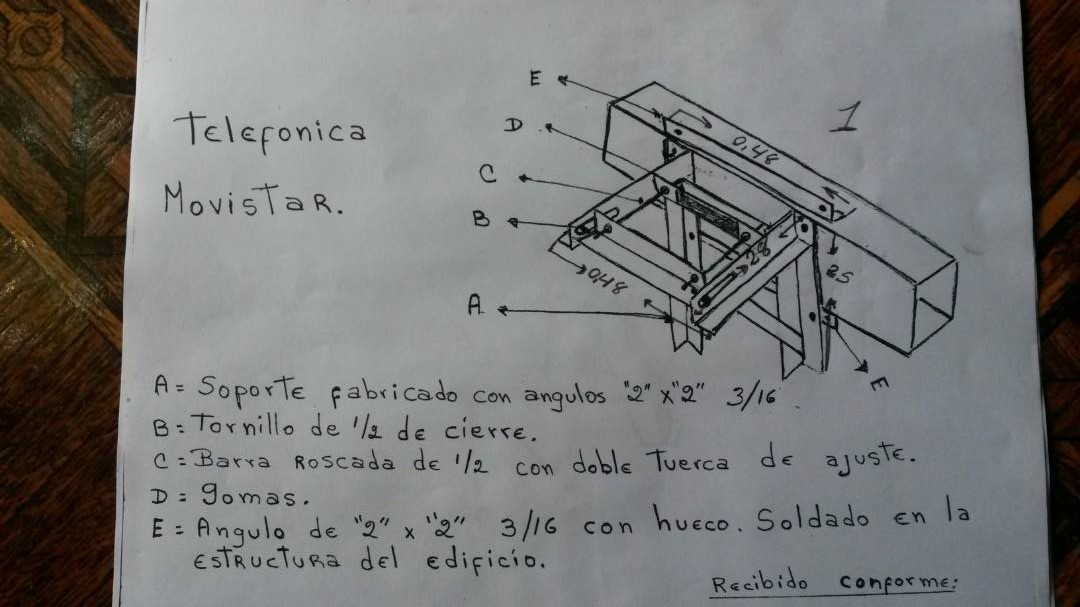 Telefonica
Movistar.
1
E
D
C
B
A
0,48
0,48
28
25
E
A = Soporte fabricado con angulos "2" x "2" 3/16
B = Tornillo de 1/2 de cierre.
C = Barra Roscada de 1/2 con doble Tuerca de ajuste.
D = gomas.
E = Angulo de "2" x "2" 3/16 con hueco. Soldado en la
estructura del edificio.
Recibido conforme: